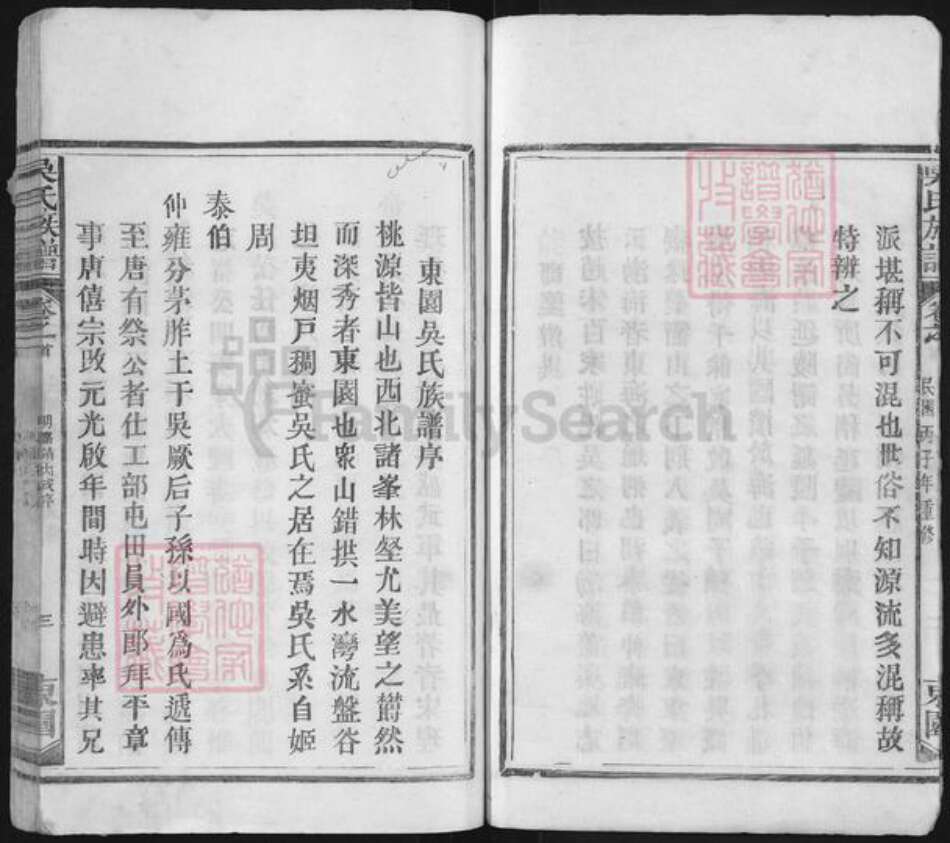 派堪稱不可混也世俗不知源流多混稱故
特辨之
吳氏族譜
民國丙子年重修
東園
東園吳氏族譜序
桃源皆山也西北諸峯林壑尤美望之欝然
而深秀者東園也衆山錯拱一水灣流盤谷
坦夷烟戶稠蜜吳氏之居在焉吳氏系自姬
周
泰伯
仲雍分茅胙土于吳厥后子孫以國爲氏遞傳
至唐有祭公者仕工部屯田員外郎拜平章
事唐僖宗改元光啟年間時因避患率其兄
吳氏族譜
卷之首
三
東園
猶他家譜學會收藏
猶他家譜學會收藏
FamilySearch